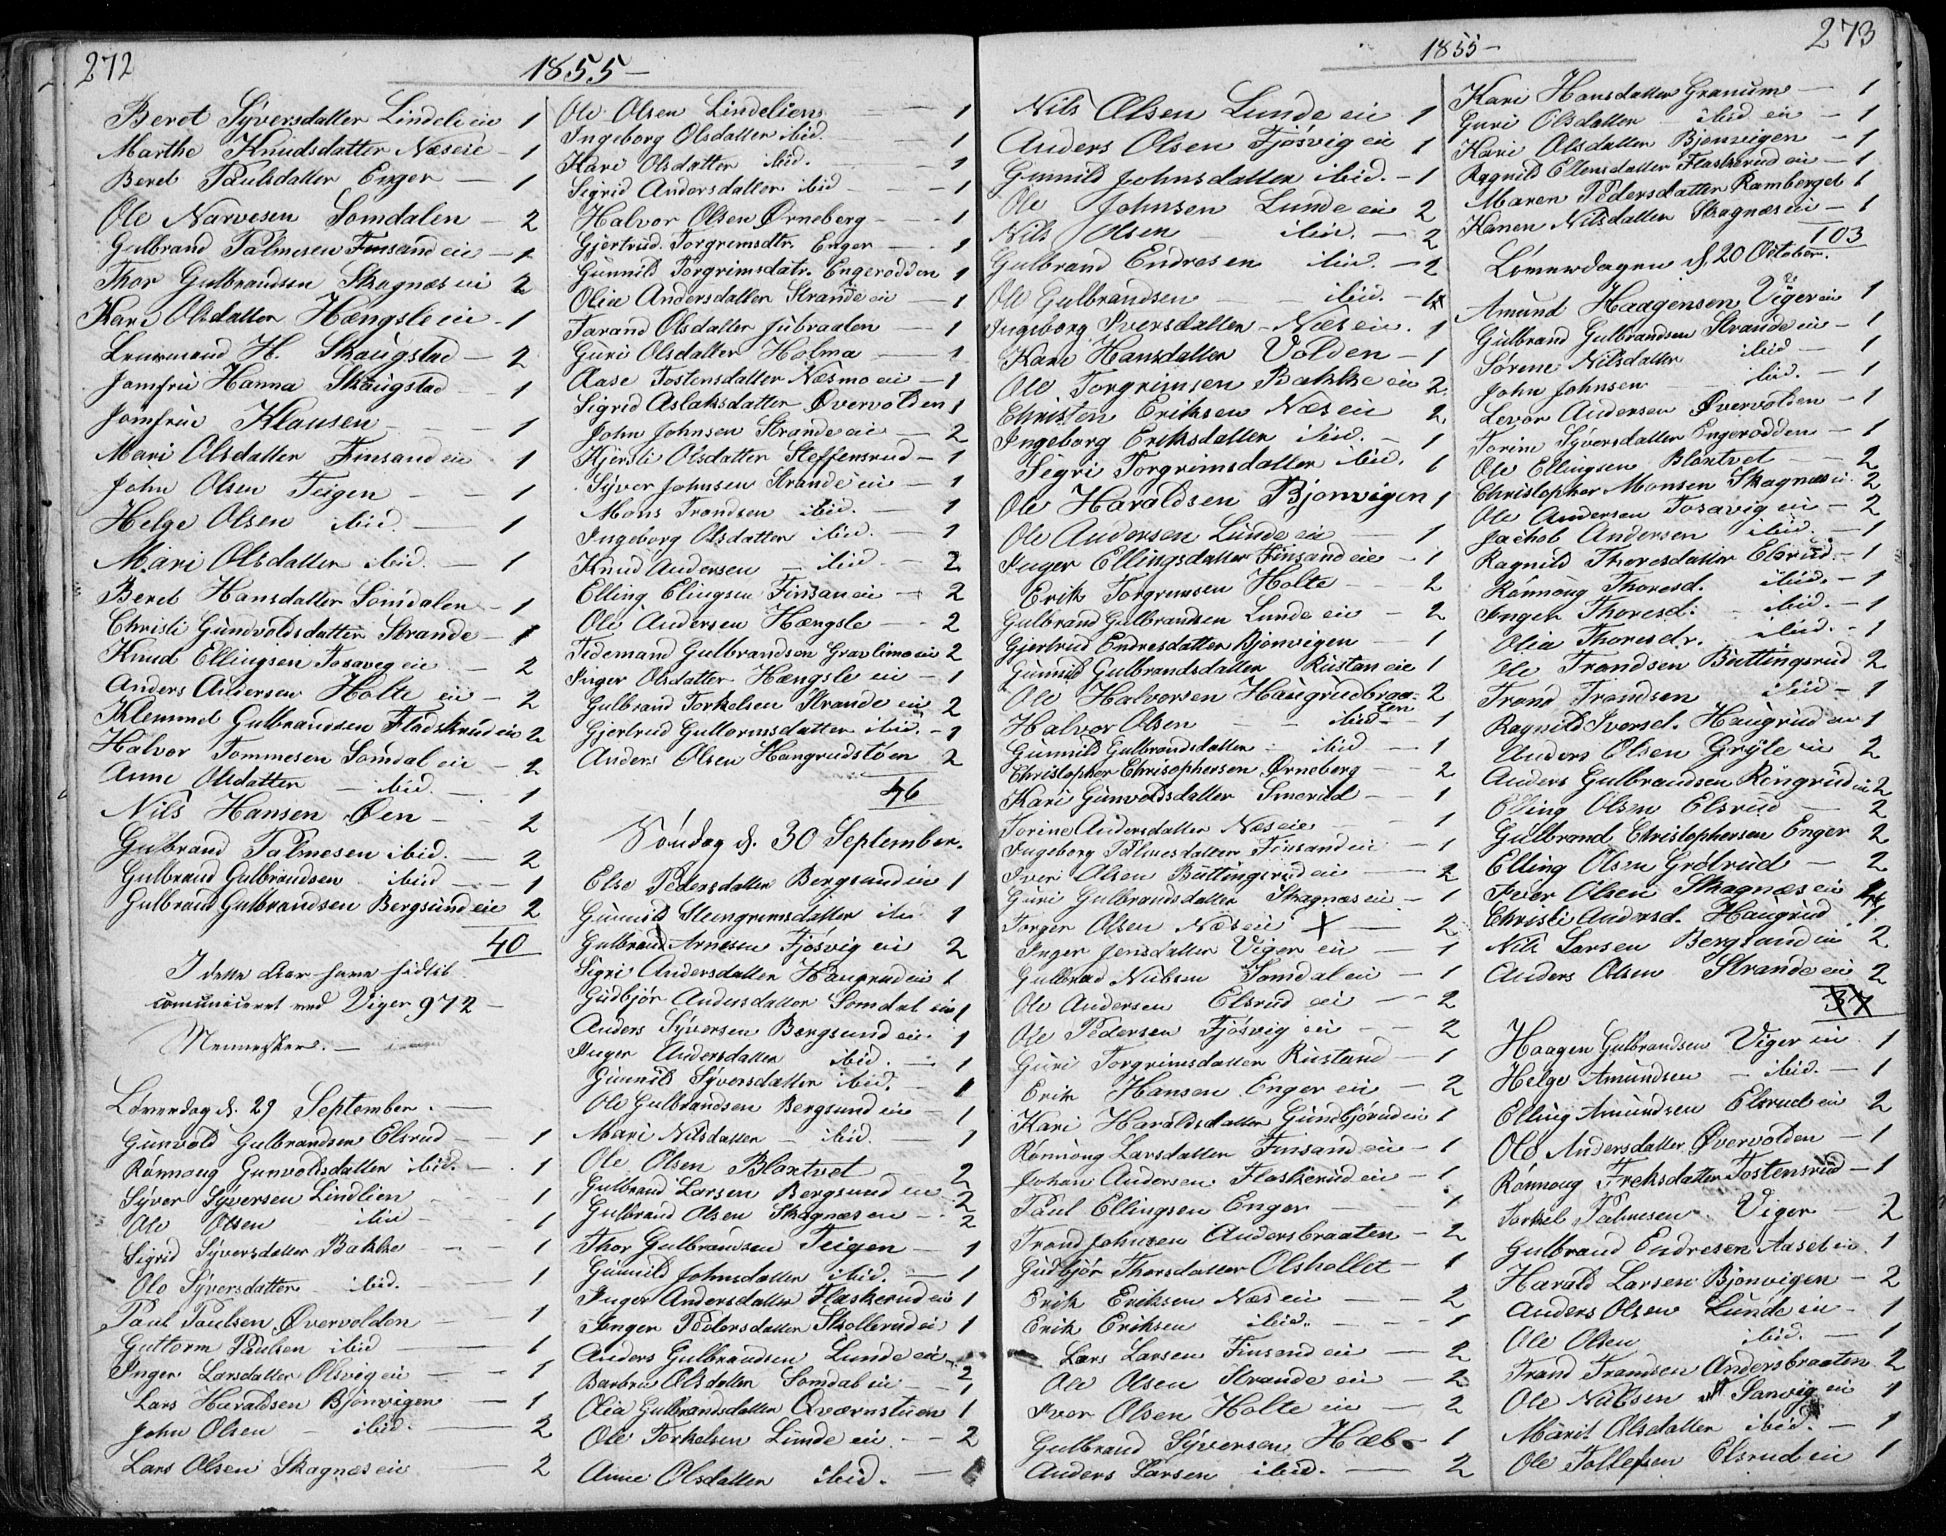 272
1855 -
Beret Syversdatter Lindeli eie 1
Marthe Knudsdatter Næseie - 1
Beret Paulsdatter Enger - 1
Ole Narvesen Somdalen - 2
Gulbrand Palmesen Finsand eie - 1
Thor Gulbrandsen Skagnæs eie 2
Kari Olsdatter Hængsle eie - 1
H. Skaugstad - 2
Jomfru Hanna Skaugstad - 1
Jomfru Klausen - 1
Mari Olsdatter Finsand eie 1
John Olsen Teigen - 1
Helge Olsen ibid. - 1
Mari Olsdatter ibid. - 1
Beret Hansdatter Somdalen - 1
Christi Gundvoldsdatter Strande - 1
Knud Ellingsen Tosaveg eie - 2
Anders Andersen Holte eie - 2
Klemmed Gulbrandsen Fladskrud eie 2
Halvor Tommesen Somdal eie - 2
Anne Olsdatter - ibid. - 1
Nils Hansen Øen - 2
Gulbrand Palmesen ibid. - 2
Gulbrand Gulbrandsen ibid - 1
Gulbrand Gulbrandsen Bergsund eie 2
40
I dette Aar have hidtil
comuniceret ved Viger 972 -
Mennesker. -
Løverdag d. 29 September. -
Gunvold Gulbrandsen Elsrud - 1
Rønnoug Gunvoldsdatter ibid. - 1
Syver Syversen Lindlien 1
Ole Olsen ibid - 1
Sigrid Syversdatter Bakke - 1
Olo Syversdatter ibid. - 1
Paul Paulsen Øvervolden - 1
Guttorm Paulsen ibid - 1
Inger Larsdatter Olsvig eie - 1
Lars Haraldsen Bjønvigen - 1
John Olsen - ibid. - 2
Lars Olsen Skagnæs eie - 2
Ole Olsen Lindelien - 1
Ingeborg Olsdatter ibid. - 1
Kari Olsdatter ibid. - 1
Sigrid Andersdatter ibid - 1
Halvor Olsen Ørneberg - 1
Gjertrud Torgrimsdtr. Enger - 1
Gunnild Torgrimsdatr. Engerodden 1
Olia Andersdatter Strande eie - 1
Tarand Olsdatter Jubraaten - 1
Guri Olsdatter Holma - 1
Aase Tostensdatter Næsmo eie - 1
Sigrid Aslaksdatter Øvervolden 1
John Johnsen Strande eie - 2
Kjersti Olsdatter Steffensrud - 1
Syver Johnsen Strande eie - 1
Mons Trondsen ibid. - 1
Ingeborg Olsdatter ibid. - 1
Knud Andersen - ibid - 2
Elling Elingsen Finsan eie - 2
Ole Andersen Hængsle - 2
Tidemand Gulbrandson Gravlimo eie 2
Inger Olsdatter Hængsle eie - 1
Gulbrand Torkelsen Strande eie 2
Gjertrud Guttormsdatter ibid. - 1
Anders Olsen Haugrudstøen 2
46
Søndag d. 30 September.
Else Pedersdatter Bergsund eie 1
Gunnild Steengrimsdatter ibi 1
Gulbrand Arnesen Fjøsvig eie 2
Sigri Andersdatter Haugrud eie 1
Gudbjør Andersdatter Somdal eie 1
Anders Syversen Bergsund eie 1
Inger Andersdatter ibid. - 1
Gunnild Syversdatter ibid. - 1
Ole Gulbrandsen Bergsund eie 1
Mari Nilsdatter - ibid. - 1
Ole Olsen Blaxtvet 2
Gulbrand Larsen Bergsund eie 2
Gulbrand Olsen Skagnæs eie - 2
Thor Gulbrandsen Teigen - 1
Gunnild Johnsdatter ibid. - 1
Inger Andersdatter Flaskerud eie 1
Inger Pedersdatter Skollerud ei 1
Anders Gulbrandsen Lunde eie - 2
Barbru Olsdatter Somdal eie - 1
Olia Gulbrandsdatter Qværnstuen 1
Ole Torkelsen Lunde eie - 2
Anne Olsdatter ibid. -
273
1855 -
Nils Olsen Lunde eie 1
Anders Olsen Fjøsvig eie 1
Gunnild Johnsdatter ibid. - 1
Ole Johnsen Lunde eie 2
Nils Olsen - ibid. - 2
Gulbrand Endresen ibid. - 2
Ole Gulbrandsen - ibid. -
Ingeborg Iversdatter - Næs eie. 1
Kari Hansdatter Volden - 1
Ole Torgrimsen Bakke eie 2
Christen Eriksen Næs eie 2
Ingeborg Eriksdatter ibid. - 1
Sigri Torgrimsdatter ibid. 1
Ole Haraldsen Bjonvigen 1
Ole Andersen Lunde eie - 1
Inger Ellingsdatter Finsand eie - 1
Erik Torgrimsen Holte - 2
Gulbrand Gulbrandsen Lunde eie - 2
Gjertrud Endresdatter Bjonvigen - 1
Gunnild Gulbrandsdatter Rustan eie 1
Ole Halvorsen Haugrudbraa- 2
ten
Halvor Olsen - ibid - 1
Gunnild Gulbrandsdatter - ibid - 1
Christopher Christophersen Ørneberg - 2
Kari Gunvoldsdatter Smerud - 1
Torine Andersdatter Næs eie - 1
Ingeborg Palmesdatter Finsand eie - 1
Iver Olsen Buttingsrud eie - 2
Guri Gulbrandsdatter Skagnæs eie - 1
Torger Olsen Næs eie X - 2
Inger Jensdatter Viger eie - 1
Gulbrand Nielsen Somdal eie - 1
Ole Andersen Elsrud eie - 2
Ole Pedersen Fjøsvig eie - 2
Guri Torgrimsdatter Rustand - 1
Erik Hansen Enger eie - 2
Kari Haraldsdatter Gundbjørud eie 1
Rønnoug Larsdatter Finsand eie - 1
Johan Andersen Flaskerud eie - 1
Paul Ellingsen Enger - 1
Trond Johnsen Andersbraaten - 2
Gudbjør Thorsdatter Olshellet - 1
Erik Eriksen Næs eie - 2
Erik Eriksen ibid. - 1
Lars Larsen Finsand eie - 2
Ole Olsen Strande eie - 2
Iver Olsen Holte eie - 2
Gulbrand Syversen Hæb - 1
Anders Larsen ibid. - 2
Kari Hansdatter Granum - 1
Guri Olsdatter - ibid eie - 1
Kari Olsdatter Bjonvigen - 1
Ragnild Ellensdatter Flaskerud eie - 1
Maren Pedersdatter Ramberget 1
Karen Nilsdatter Skagnæs eie - 1
103
Løverdagen d. 20 October.
Amund Haagensen Viger eie 1
Gulbrand Gulbrandsen Strande eie - 1
Sørene Nilsdatter ibid - 1
John Johnsen - ibid. - 1
Levor Andersen Øvervolden - 1
Torine Syversdatter Engerodden - 1
Ole Ellingsen Blaxtvet - 2
Christopher Monsen Skagnæs ei. 2
Ole Andersen Tosavig eie - 2
Jachob Andersen ibid. - 1
Ragnild Thoresdatter Elsrud. - 1
Rønnoug Thoresd. ibid. - 1
Inger Thoresd. - ibid. - 1
Olia Thoresdr. ibid. - 1
Ole Trondsen Buttingsrud 2
Trond Trondsen ibid - 1
Ragnild Iversd. Haugrud eie 1
Anders Olsen Gryte eie 2
Anders Gulbrandsen Ringrud eie 2
Elling Olsen Elsrud - 2
Gulbrand Christophersen Enger 2
Elling Olsen Grøtrud - 2
Iver Olsen Skagnæs eie
Christi Andersd. Haugrud. 1
Nils Larsen Bergsund eie 2
Anders Olsen Strande eie 2
37
Haagen Gulbrandsen Viger eie 1
Helge Amundsen - ibid. - 1
Elling Amundsen Elsrud eie 2
Olo Andersdatter Øvervolden - 1
Rønnoug Freksdatter Tostensrud - 1
Torkel Palmesen Viger - 2
Gulbrand Endresen Aaset eie 1
Harald Larsen Bjonvigen - 2
Anders Olsen Lunde eie - 1
Ole Olsen ibid. - 1
Trond Trondsen Andersbraaten 2
Ole Nilsen Sanvig eie 1
Marit Olsdatter ibid. - 1
Ole Tollefsen Elsrud eie 1